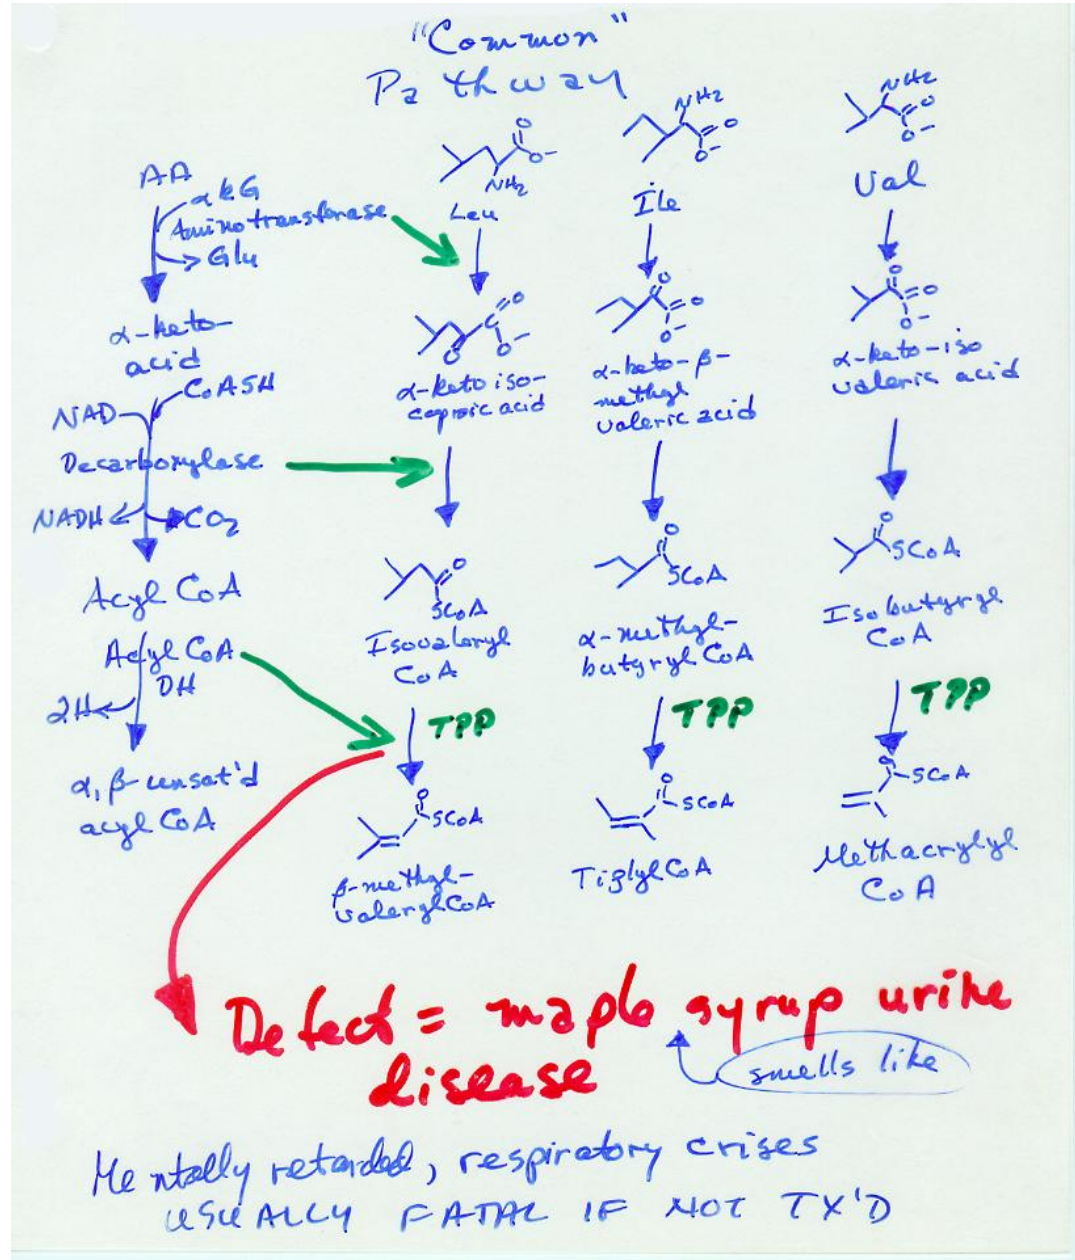 "Common"
Pathway
AA
αkG
Aminotransferase
Glu
α-keto-
acid
CoASH
NAD
Decarboxylase
NADH
CO2
Acyl CoA
Acyl CoA
DH
2H
α, β-unsat'd
acyl CoA
O
O-
NH2
Leu
O
O-
O
α-keto iso-
caproic acid
O
SCoA
Isovaleryl
CoA
TPP
O
SCoA
β-methyl-
valeryl CoA
NH2
O
O-
Ile
O
O
O-
α-keto-β-
methyl
valeric acid
O
SCoA
α-methyl-
butyryl CoA
TPP
O
SCoA
Tiglyl CoA
NH2
O
O-
Val
O
O
O-
α-keto-iso
valeric acid
O
SCoA
Isobutyryl
CoA
TPP
O
SCoA
Methacrylyl
CoA
Defect = maple syrup urine
disease
smells like
Mentally retarded, respiratory crises
USUALLY FATAL IF NOT TX'D